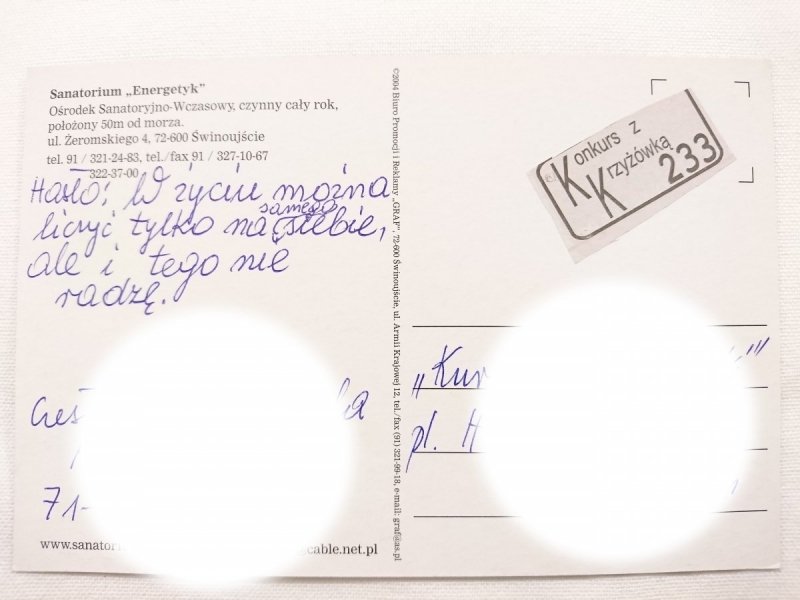 Sanatorium „Energetyk”
Ośrodek Sanatoryjno-Wczasowy, czynny cały rok,
położony 50m od morza.
ul. Żeromskiego 4, 72-600 Świnoujście
tel. 91 / 321-24-83, tel./fax 91 / 327-10-67
322-37-00
Hasło: W życiu można
liczyć tylko na samego siebie,
ale i tego nie
radzę.
71-
www.sanator
cable.net.pl
©2004 Biuro Promocji i Reklamy „GRAF”, 72-600 Świnoujście, ul. Armii Krajowej 12, tel./fax (91) 321-99-18, e-mail: graf@as.pl
Konkurs z
Krzyżówką
233
„Kur
pl. H